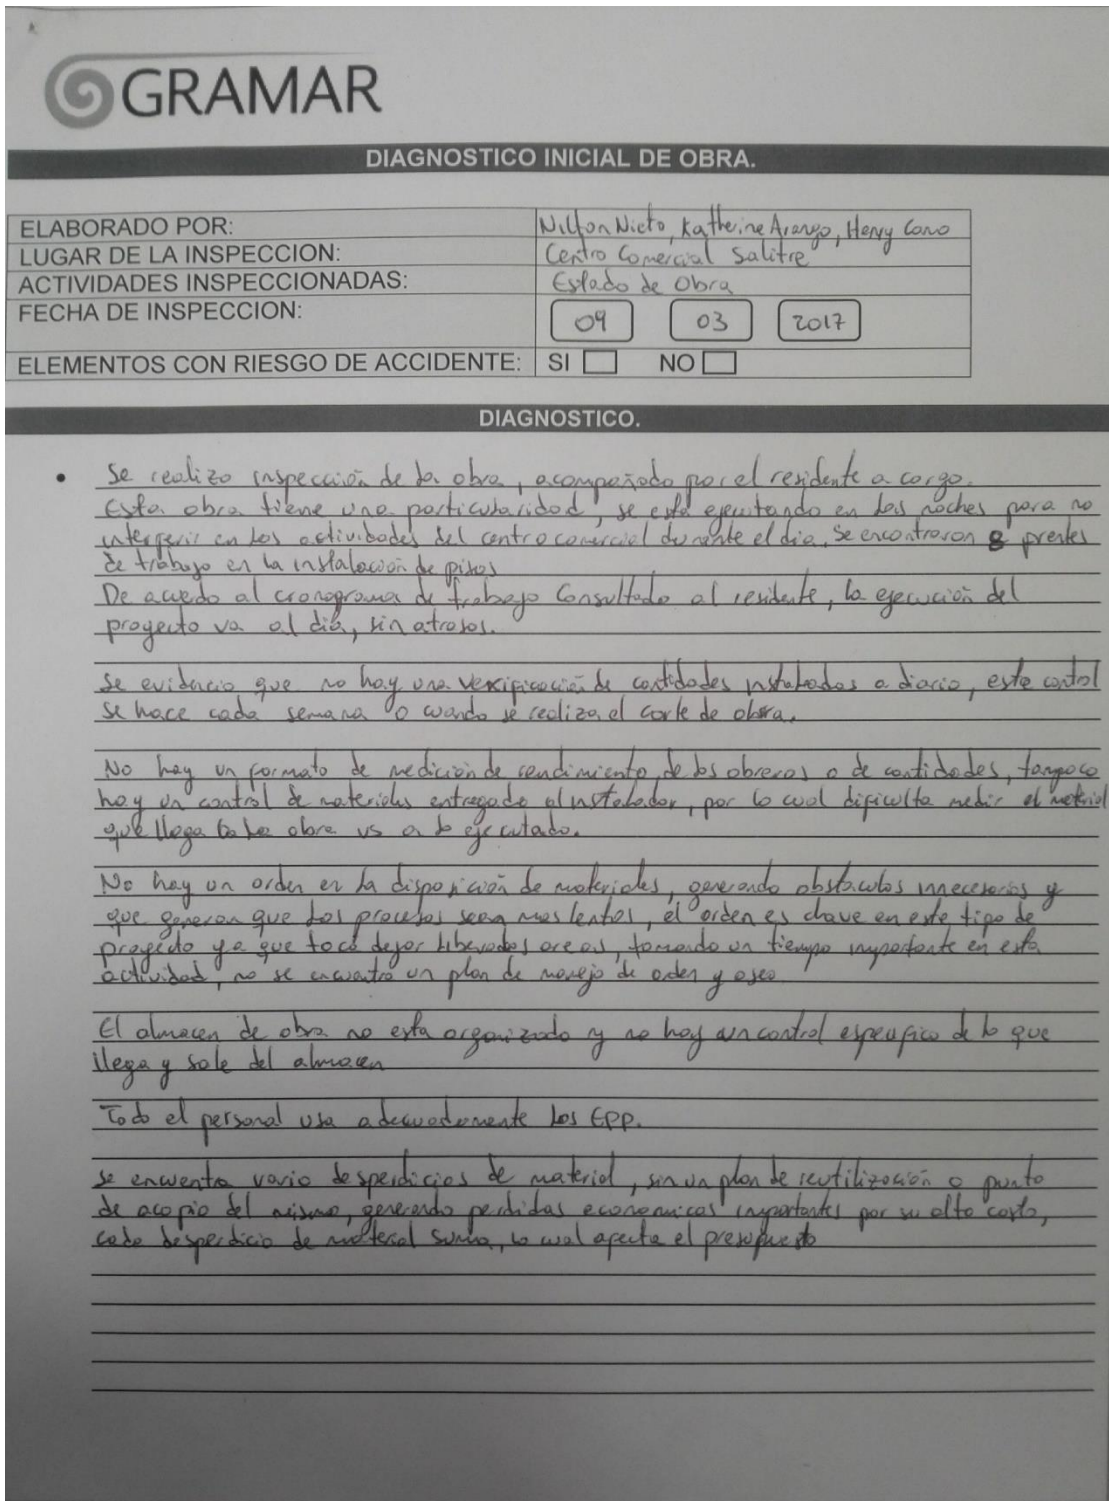 GRAMAR
DIAGNOSTICO INICIAL DE OBRA.
ELABORADO POR: Nilton Nieto, Katherine Arango, Henry Cano
LUGAR DE LA INSPECCION: Centro Comercial Salitre
ACTIVIDADES INSPECCIONADAS: Estado de Obra
FECHA DE INSPECCION: 09 03 2017
ELEMENTOS CON RIESGO DE ACCIDENTE: SI NO
DIAGNOSTICO.
• Se realizo inspección de la obra, acompañado por el residente a cargo.
Esta obra tiene una particularidad, se está ejecutando en las noches para no
interferir en las actividades del centro comercial durante el dia, Se encontraron 8 frentes
de trabajo en la instalación de pisos
De acuedo al cronograma de trabajo Consultado al residente, la ejecución del
proyecto va al día, sin atrasos.
Se evidencio que no hay una verificación de cantidades instaladas a diario, este control
se hace cada semana o cuando se realiza el corte de obra.
No hay un formato de medición de rendimiento de los obreros o de cantidades, tampoco
hay un control de materiales entregado al instalador, por lo cual dificulta medir el material
que llega a la obra vs a lo ejecutado.
No hay un orden en la disposición de materiales, generando obstaculos innecesarios y
que generan que los procesos sean mas lentos, el orden es clave en este tipo de
proyecto ya que toca dejar liberadas areas, tomando un tiempo importante en esta
actividad, no se encuentra un plan de manejo de orden y aseo
El almacen de obra no esta organizado y no hay un control especifico de lo que
llega y sale del almacen
Todo el personal usa adecuadamente los EPP.
se encuentra vario desperdicios de material, sin un plan de reutilización o punto
de acopio del mismo, generando perdidas economicas importantes por su alto costo,
cada desperdicio de material suma, lo cual afecta el presupuesto